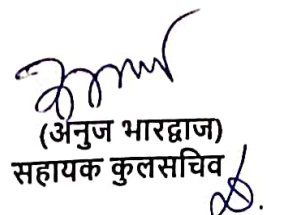 (अनुज भारद्वाज)
सहायक कुलसचिव